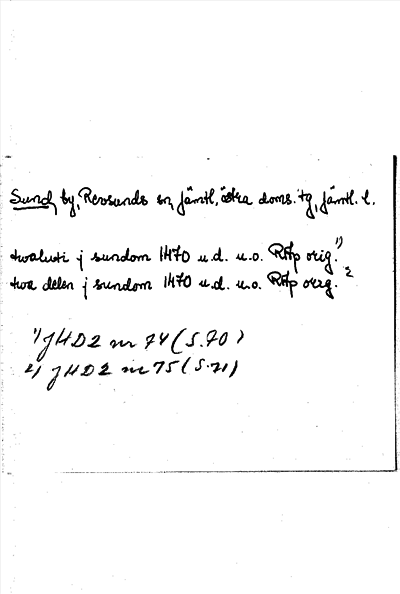 Sund, by, Revsunds sn, Jämtl. östra doms. tg, Jämtl. l.
twaluti j sundom 1470 u.d. u.o. RAp orig. 1)
twa delen j sundom 1470 u.d. u.o. RAp orig. 2
1) JHD2 nr 74 (S.70)
2) JHD2 nr 75 (S.71)